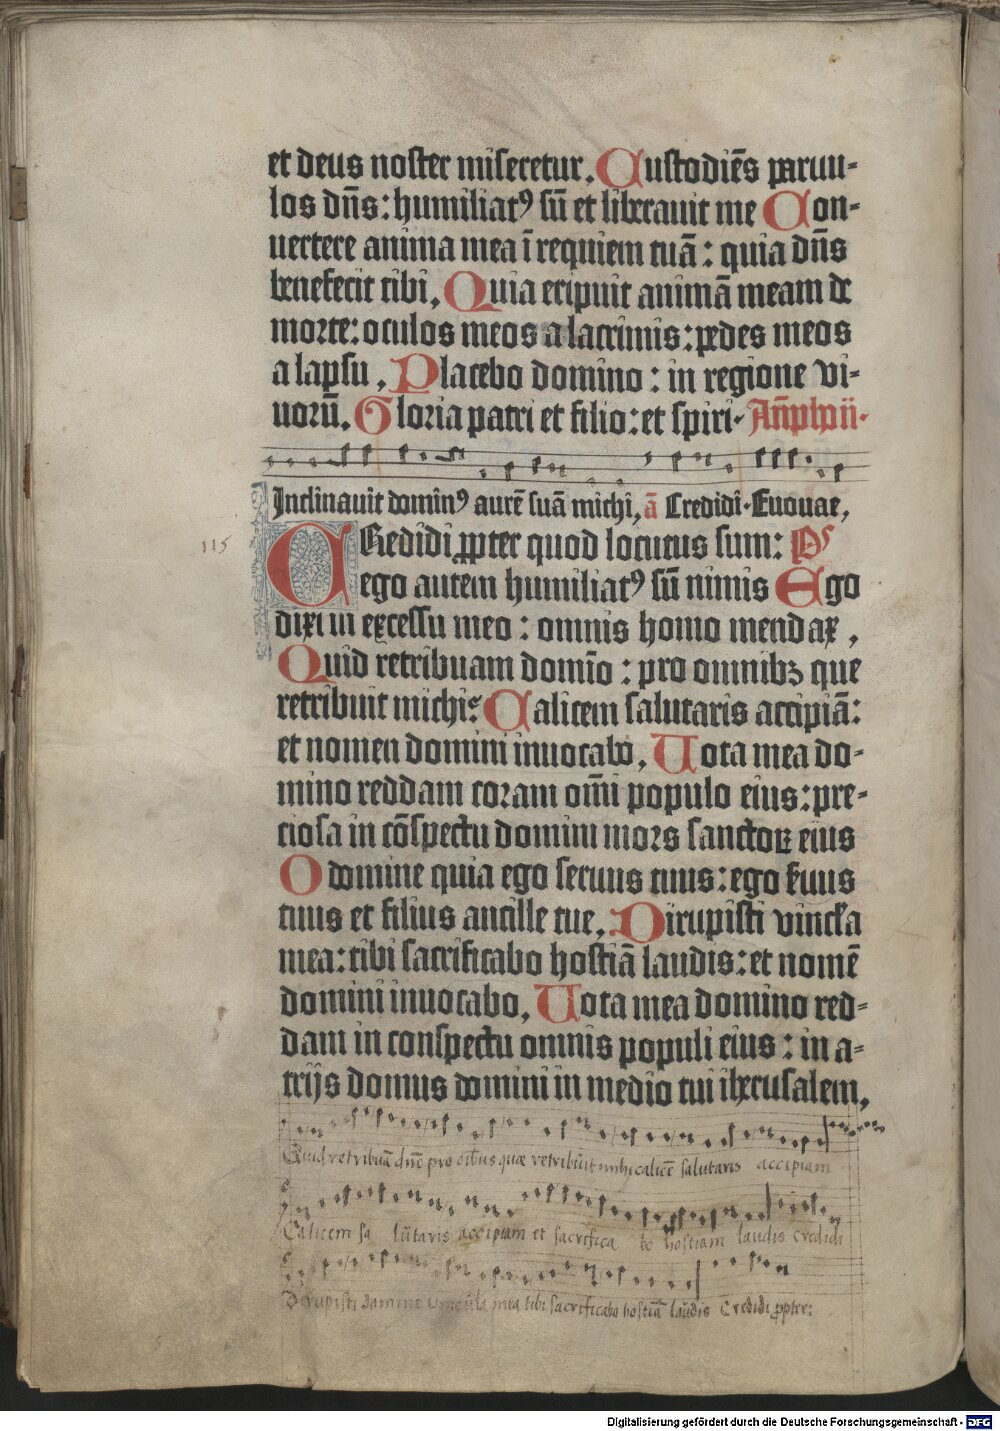 et deus noster miseretur. Custodiēs paruu-
los dn̄s: humiliatꝰ sū et liberauit me Con-
uertere anima mea ī requiem tuā: quia dn̄s
benefecit tibi. Quia eripuit animā meam de
morte: oculos meos a lacrimis: pedes meos
a lapsu. Placebo domino: in regione vi-
uorū. Gloria patri et filio: et spiri.
Inclinauit dominꝰ aurē suā michi, ā Credidi. Euouae,
115
CRedidi ꝓpter quod locutus sum: Ps
ego autem humiliatꝰ sū nimis Ego
dixi in excessu meo: omnis homo mendax,
Quid retribuam domīo: pro omnibꝫ que
retribuit michi? Calicem salutaris accipiā:
et nomen domini inuocabo. Uota mea do-
mino reddam coram om̄i populo eius: pre-
ciosa in cōspectu domini mors sanctoꝝ eius
O domine quia ego seruus tuus: ego ẜuus
tuus et filius ancille tue. Dirupisti vincła
mea: tibi sacrificabo hostiā laudis: et nomē
domini inuocabo. Uota mea domino red-
dam in conspectu omnis populi eius: in a-
trijs domus domini in medio tui iherusalem,
Quid retribuā dn̄e pro oībus quae retribuit mihi calicē salutaris accipiam
Calicem sa lutaris accipiam et sacrifica bo hostiam laudis Credidi
Dirupisti domine vincula mea tibi sacrificabo hostiā laudis Credidi ꝓpter:
Digitalisierung gefördert durch die Deutsche Forschungsgemeinschaft - DFG